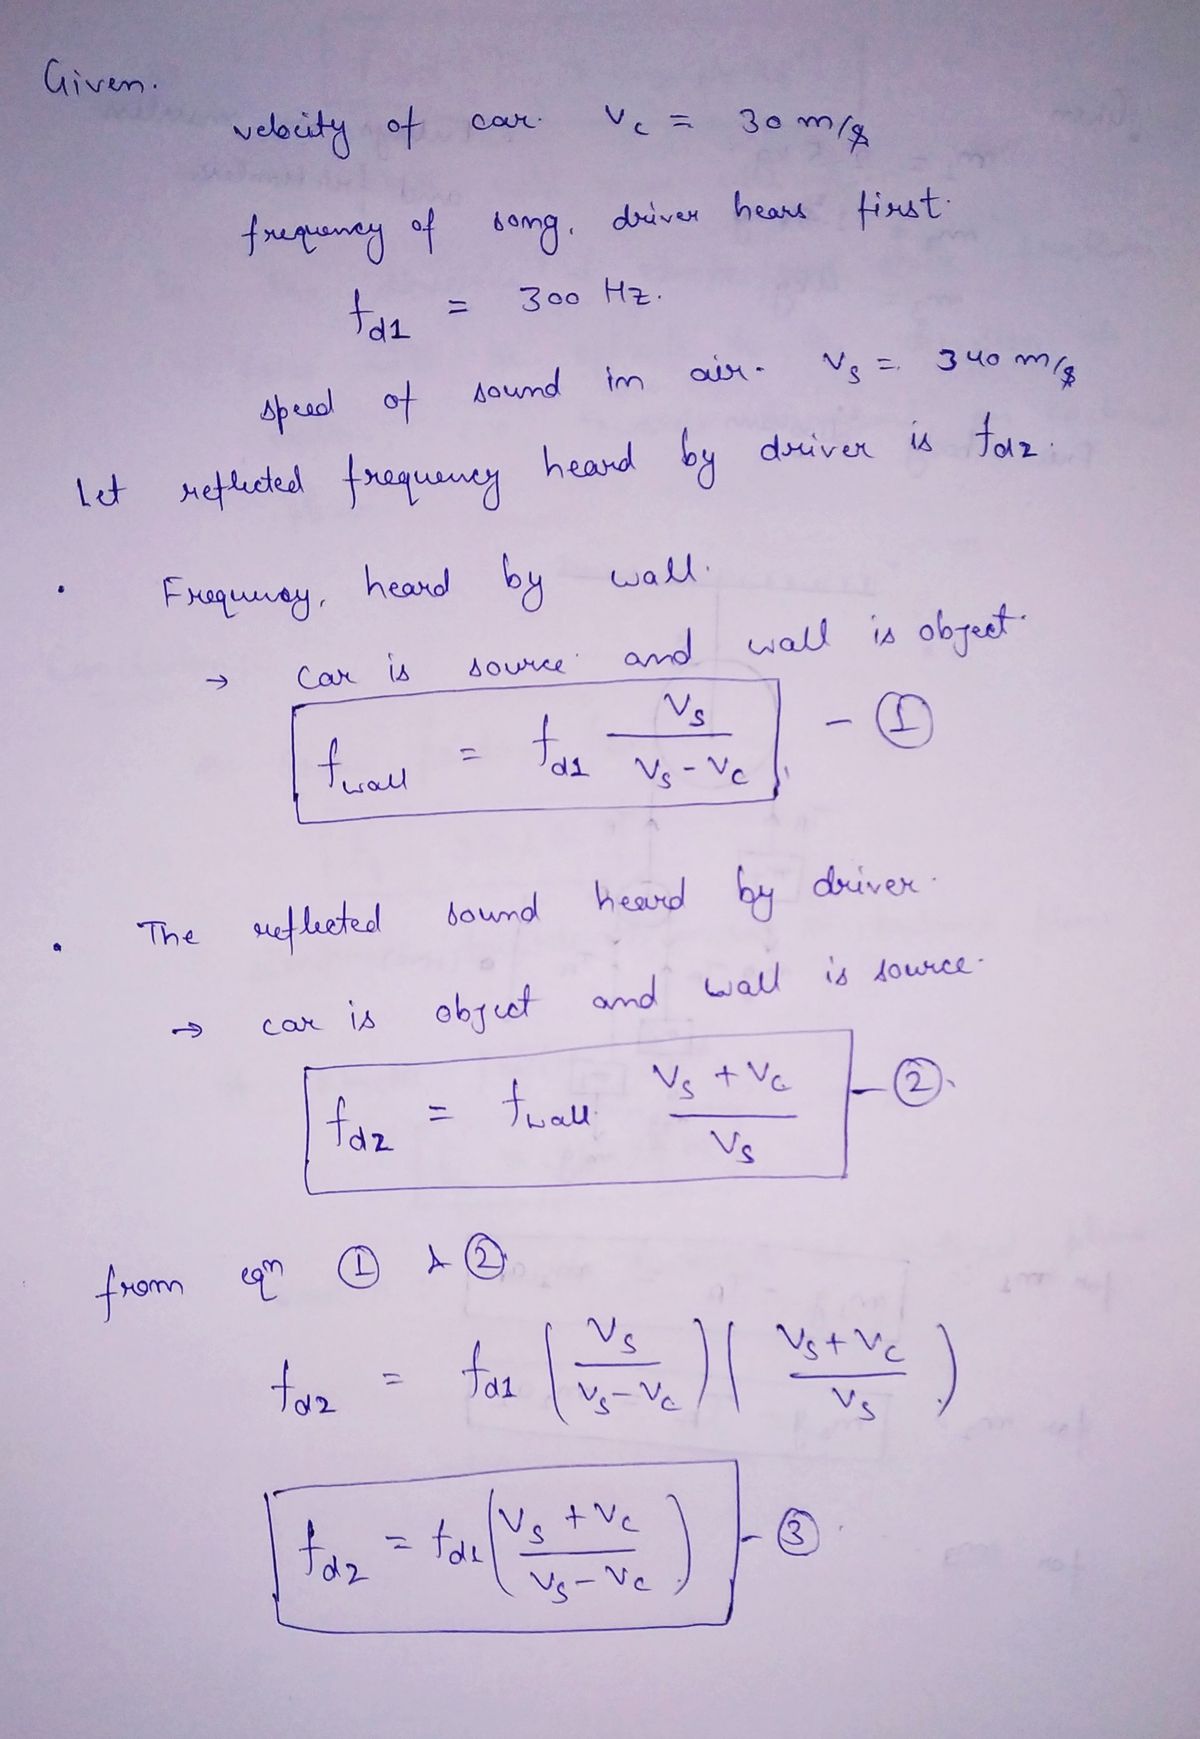 Given.
velocity of car. Vc = 30 m/s
frequency of song, driver hears first.
fd1 = 300 Hz.
speed of sound in air. Vs = 340 m/s
Let reflected frequency heard by driver is fd2.
. Frequency, heard by wall.
→ Car is source and wall is object.
fwall = fd1 Vs / (Vs - Vc) - ①
. The reflected sound heard by driver.
→ car is object and wall is source.
fd2 = fwall (Vs + Vc) / Vs - ②.
from eqn ① & ②
fd2 = fd1 (Vs / (Vs - Vc)) ((Vs + Vc) / Vs)
fd2 = fd1 ((Vs + Vc) / (Vs - Vc)) - ③